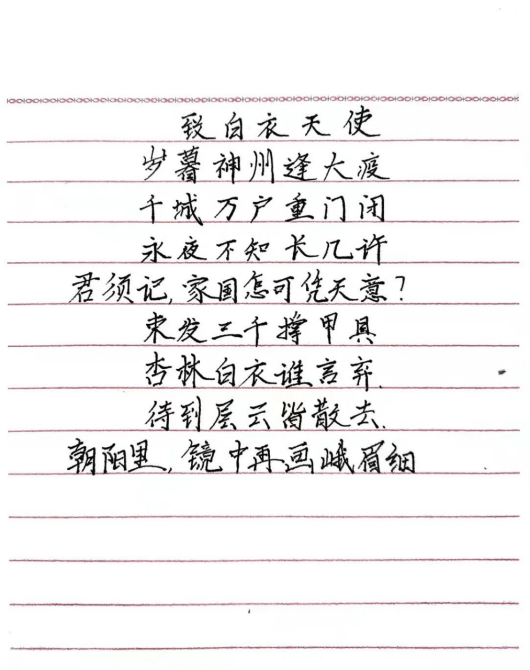 致白衣天使
岁暮神州逢大疫
千城万户重门闭
永夜不知长几许
君须记,家国怎可凭天意?
束发三千擐甲具
杏林白衣谁言弃.
待到层云皆散去.
朝阳里,镜中再画峨眉细